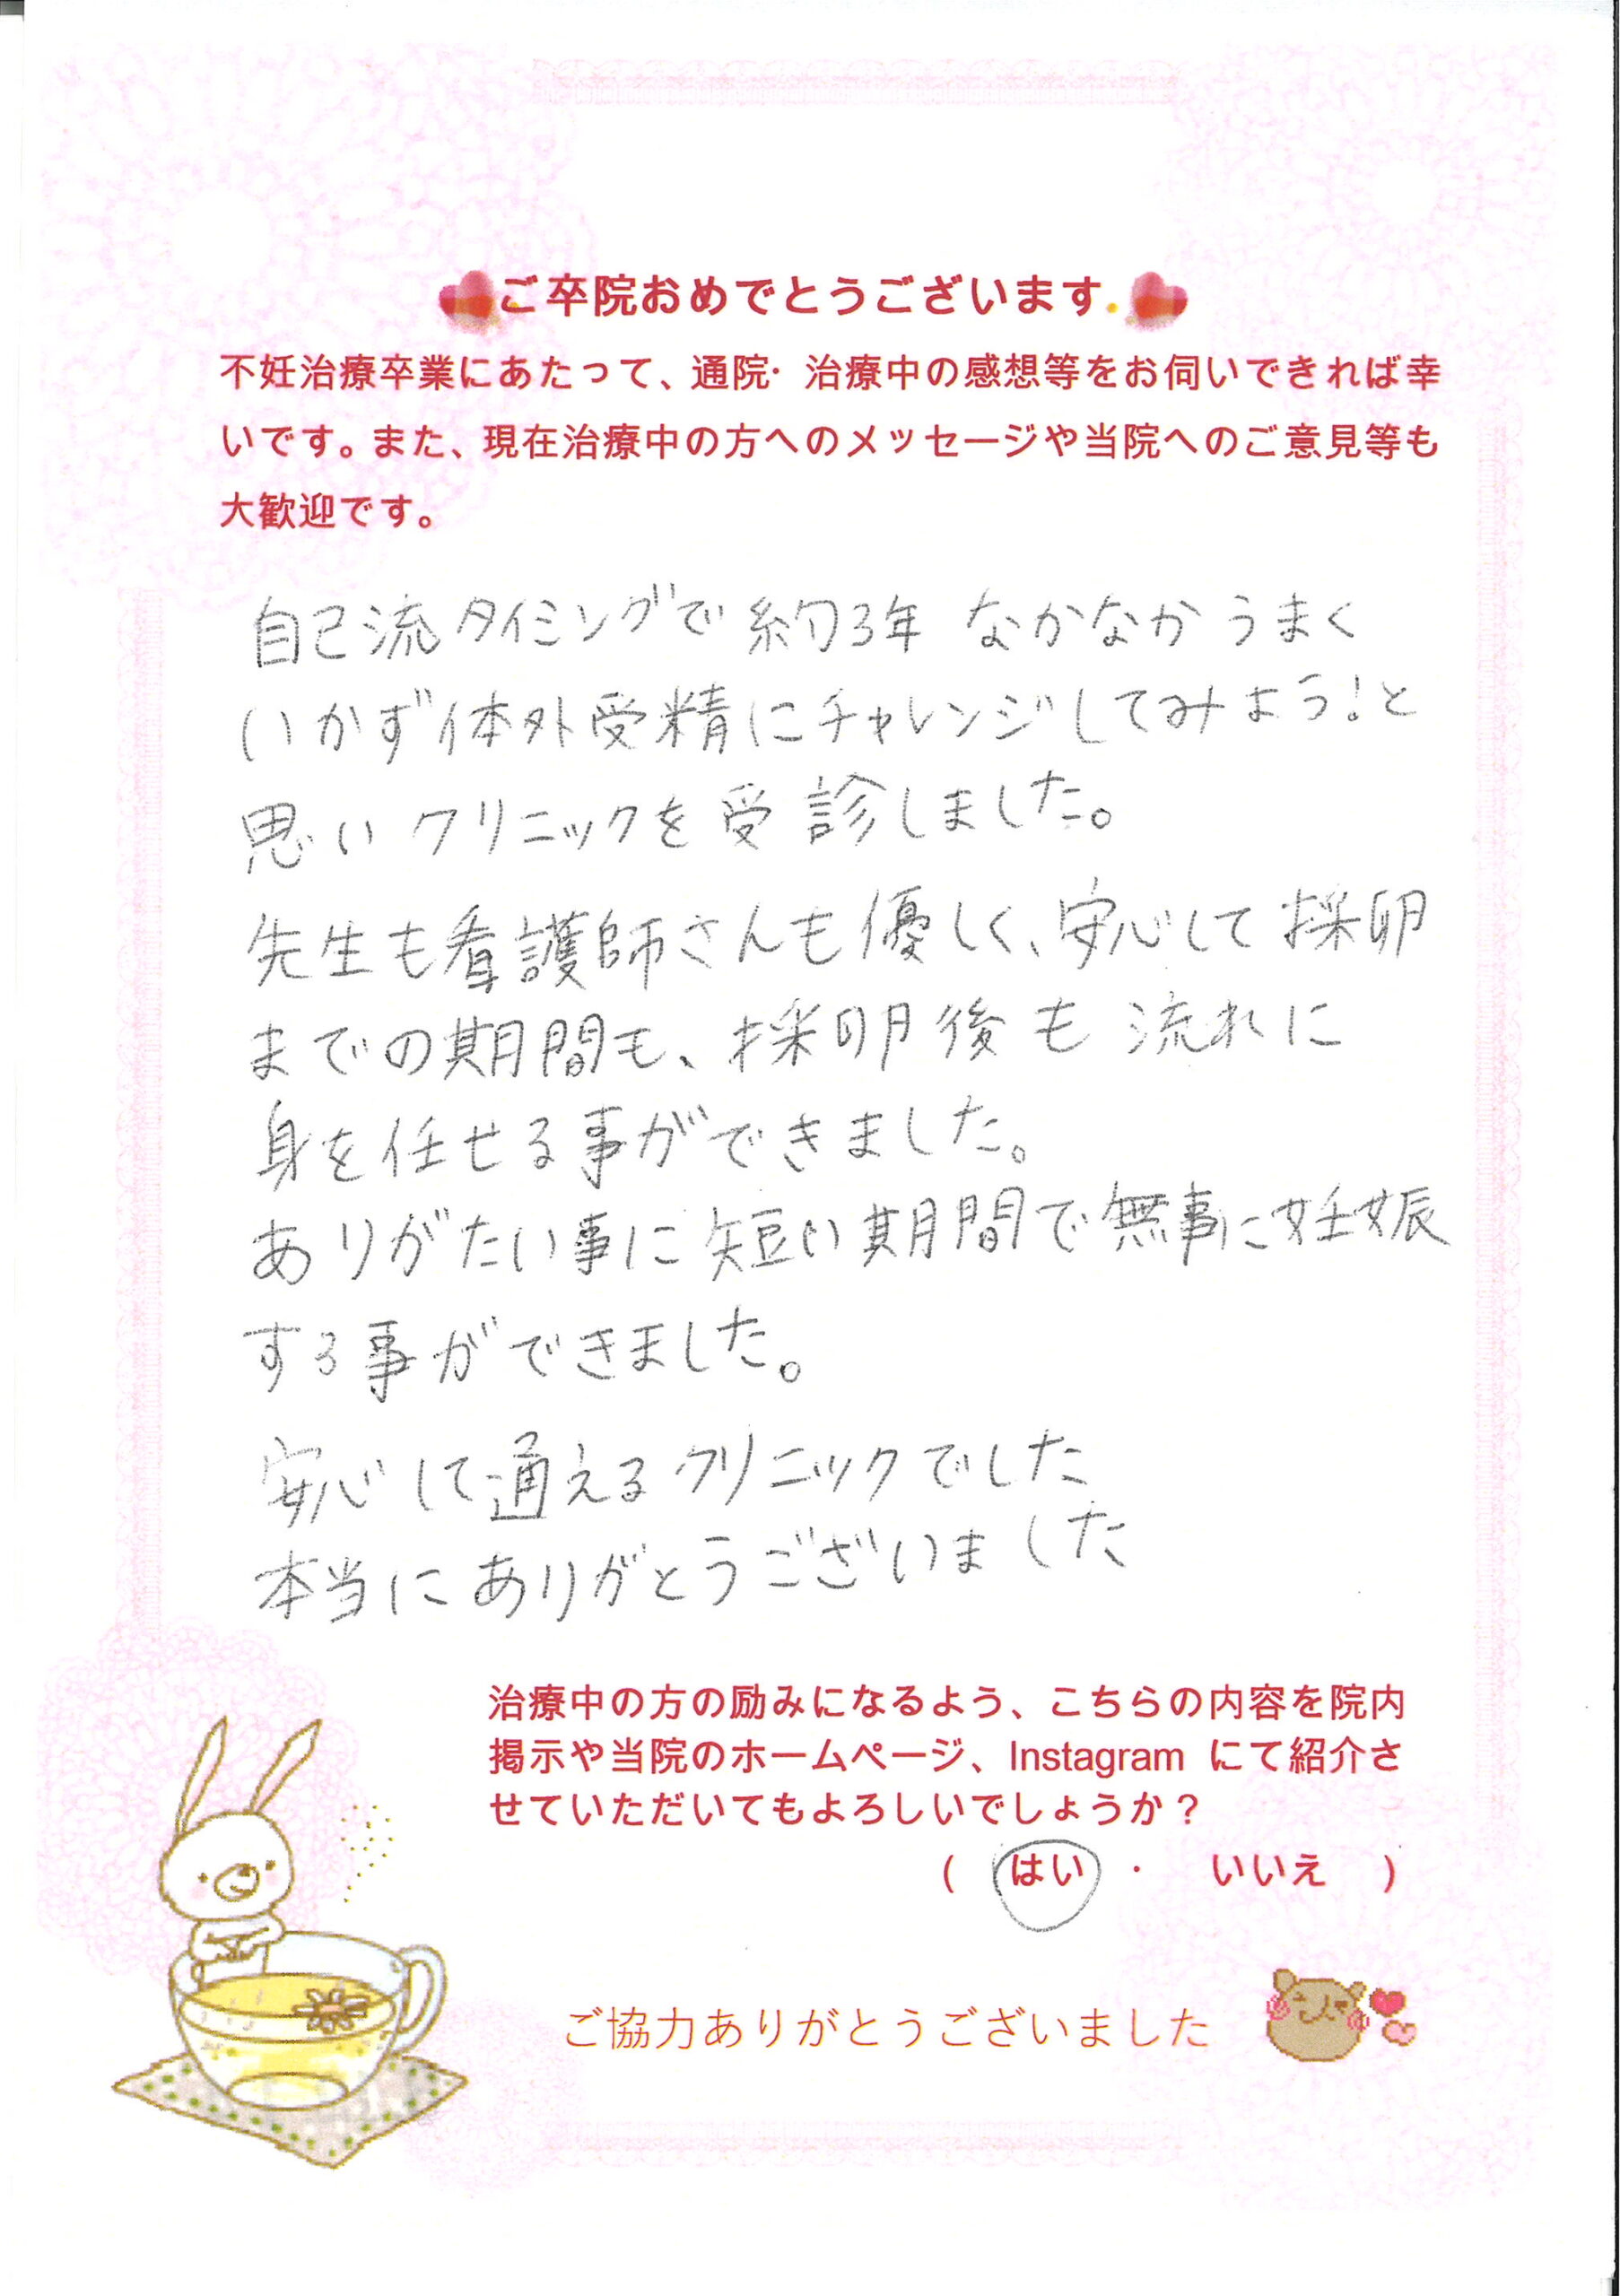 ご卒院おめでとうございます
不妊治療卒業にあたって、通院・治療中の感想等をお伺いできれば幸
いです。また、現在治療中の方へのメッセージや当院へのご意見等も
大歓迎です。
自己流タイミングで約3年 なかなかうまく
いかず体外受精にチャレンジしてみよう!と
思いクリニックを受診しました。
先生も看護師さんも優しく、安心して採卵
までの期間も、採卵後も流れに
身を任せる事ができました。
ありがたい事に短い期間で無事に妊娠
する事ができました。
安心して通えるクリニックでした
本当にありがとうございました
治療中の方の励みになるよう、こちらの内容を院内
掲示や当院のホームページ、Instagram にて紹介さ
せていただいてもよろしいでしょうか?
( はい ・ いいえ )
ご協力ありがとうございました